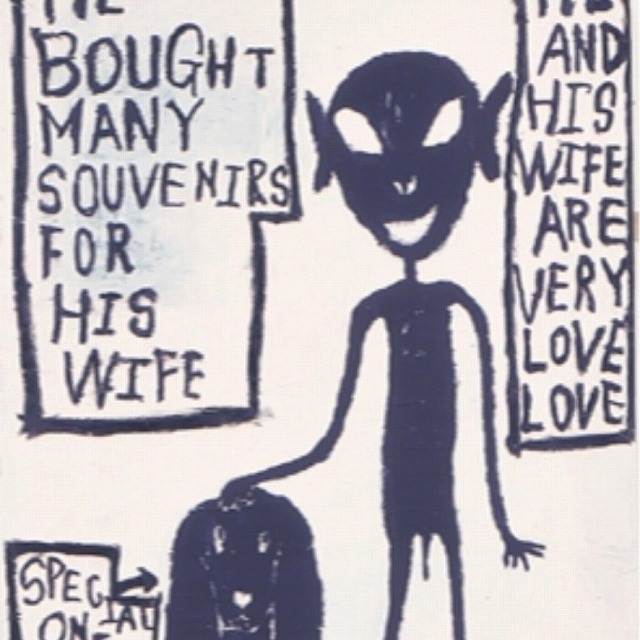 HE
BOUGHT
MANY
SOUVENIRS
FOR
HIS
WIFE
AND
HIS
WIFE
ARE
VERY
LOVE
LOVE
SPECIAL
ON-